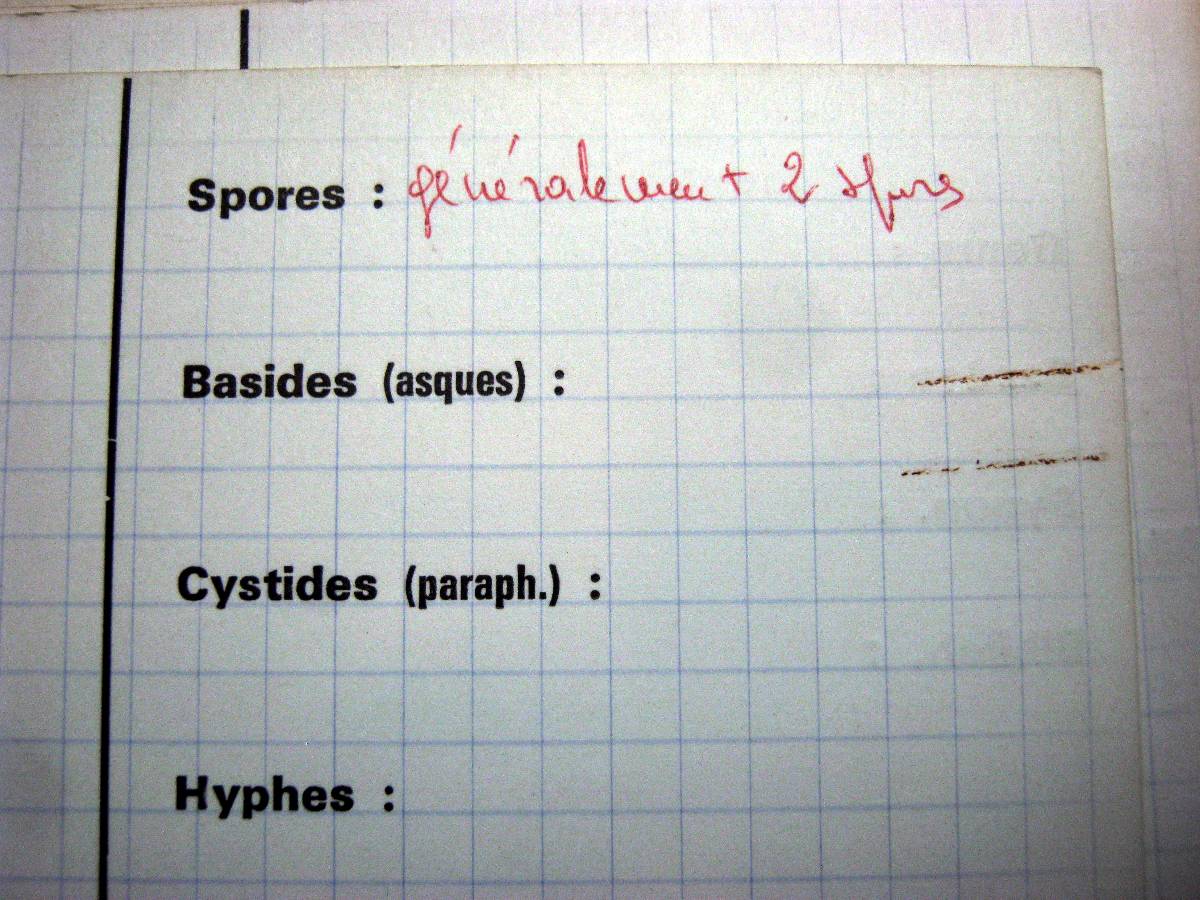 Spores : généralement 2 spores
Basides (asques) :
Cystides (paraph.) :
Hyphes :